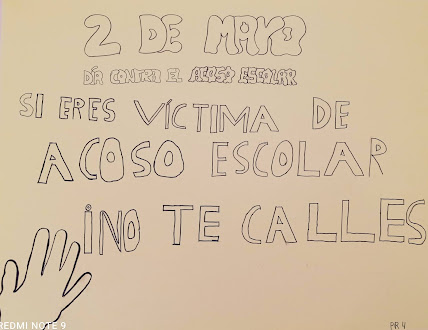 2 DE MAYO
DÍA CONTRA EL ACOSO ESCOLAR
SI ERES VÍCTIMA DE
ACOSO ESCOLAR
¡NO TE CALLES
REDMI NOTE 9